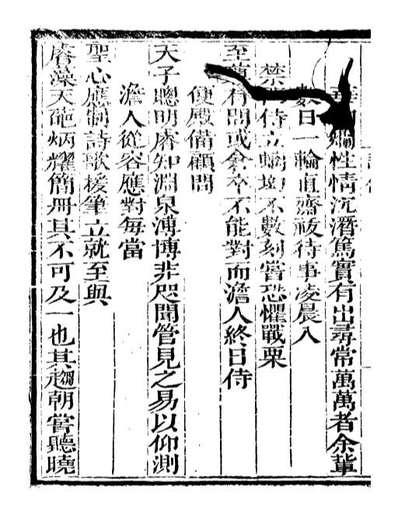 爛性情沉潛篤實有出尋常萬萬者余輩
數日一輪直齋祓待事凌晨入
禁侍立螭坳不數刻嘗恐懼戰栗
至尊有問或倉卒不能對而澹人終日侍
便殿備顧問
天子聰明睿知淵泉溥博非咫聞管見之易以仰測
澹人從容應對每當
聖心應制詩歌援筆立就至與
睿藻天葩炳耀簡冊其不可及一也其趨朝嘗聽曉